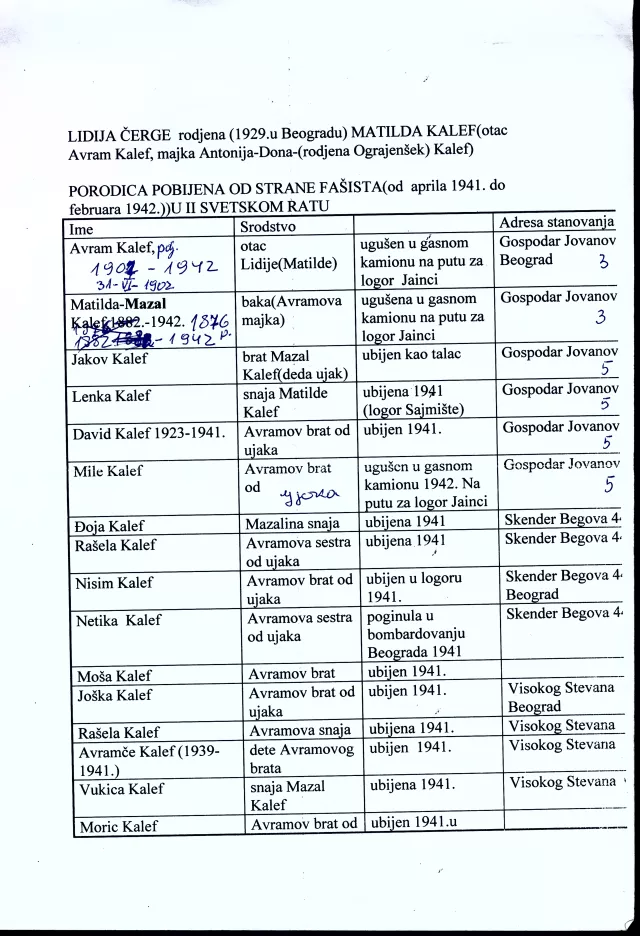 LIDIJA ČERGE rodjena (1929.u Beogradu) MATILDA KALEF(otac
Avram Kalef, majka Antonija-Dona-(rodjena Ograjenšek) Kalef)
PORODICA POBIJENA OD STRANE FAŠISTA(od aprila 1941. do
februara 1942.))U II SVETSKOM RATU
Ime
Srodstvo
Adresa stanovanja
Avram Kalef,
1902 - 1942
31-VI-1902
otac
Lidije(Matilde)
ugušen u gasnom
kamionu na putu za
logor Jainci
Gospodar Jovanov
Beograd 3
Matilda-Mazal
Kalef 1882.-1942. 1876
- 1942
baka(Avramova
majka)
ugušena u gasnom
kamionu na putu za
logor Jainci
Gospodar Jovanov
3
Jakov Kalef
brat Mazal
Kalef(deda ujak)
ubijen kao talac
Gospodar Jovanov
5
Lenka Kalef
snaja Matilde
Kalef
ubijena 1941
(logor Sajmište)
Gospodar Jovanov
5
David Kalef 1923-1941.
Avramov brat od
ujaka
ubijen 1941.
Gospodar Jovanov
5
Mile Kalef
Avramov brat
od ujaka
ugušen u gasnom
kamionu 1942. Na
putu za logor Jainci
Gospodar Jovanov
5
Đoja Kalef
Mazalina snaja
ubijena 1941
Skender Begova 4
Rašela Kalef
Avramova sestra
od ujaka
ubijena 1941
Skender Begova 4
Nisim Kalef
Avramov brat od
ujaka
ubijen u logoru
1941.
Skender Begova 4
Beograd
Netika Kalef
Avramova sestra
od ujaka
poginula u
bombardovanju
Beograda 1941
Skender Begova 4
Moša Kalef
Avramov brat
ubijen 1941.
Joška Kalef
Avramov brat od
ujaka
ubijen 1941.
Visokog Stevana
Beograd
Rašela Kalef
Avramova snaja
ubijena 1941.
Visokog Stevana
Avramče Kalef (1939-
1941.)
dete Avramovog
brata
ubijen 1941.
Visokog Stevana
Vukica Kalef
snaja Mazal
Kalef
ubijena 1941.
Visokog Stevana
Moric Kalef
Avramov brat od
ubijen 1941.u